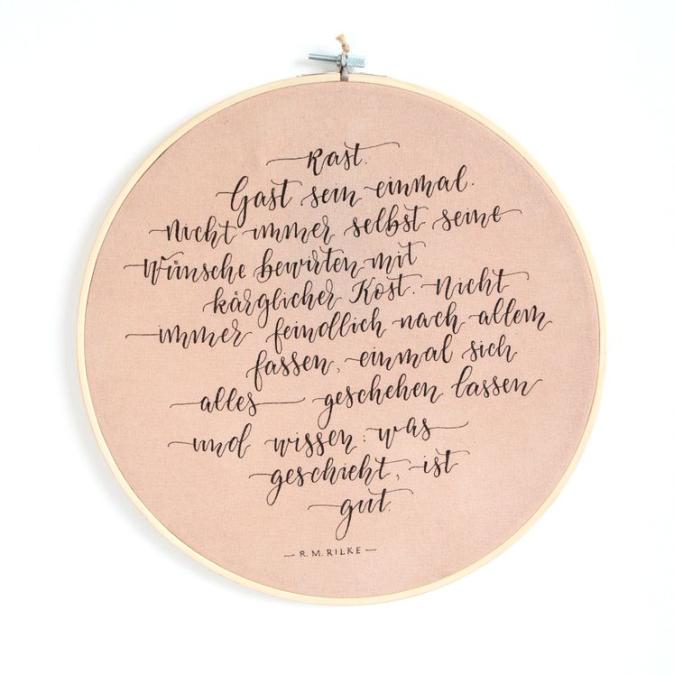 Rast.
Gast sein einmal.
Nicht immer selbst seine
Wünsche bewirten mit
kärglicher Kost. Nicht
immer feindlich nach allem
fassen, einmal sich
alles geschehen lassen
und wissen: was
geschieht, ist
gut.
— R. M. RILKE —